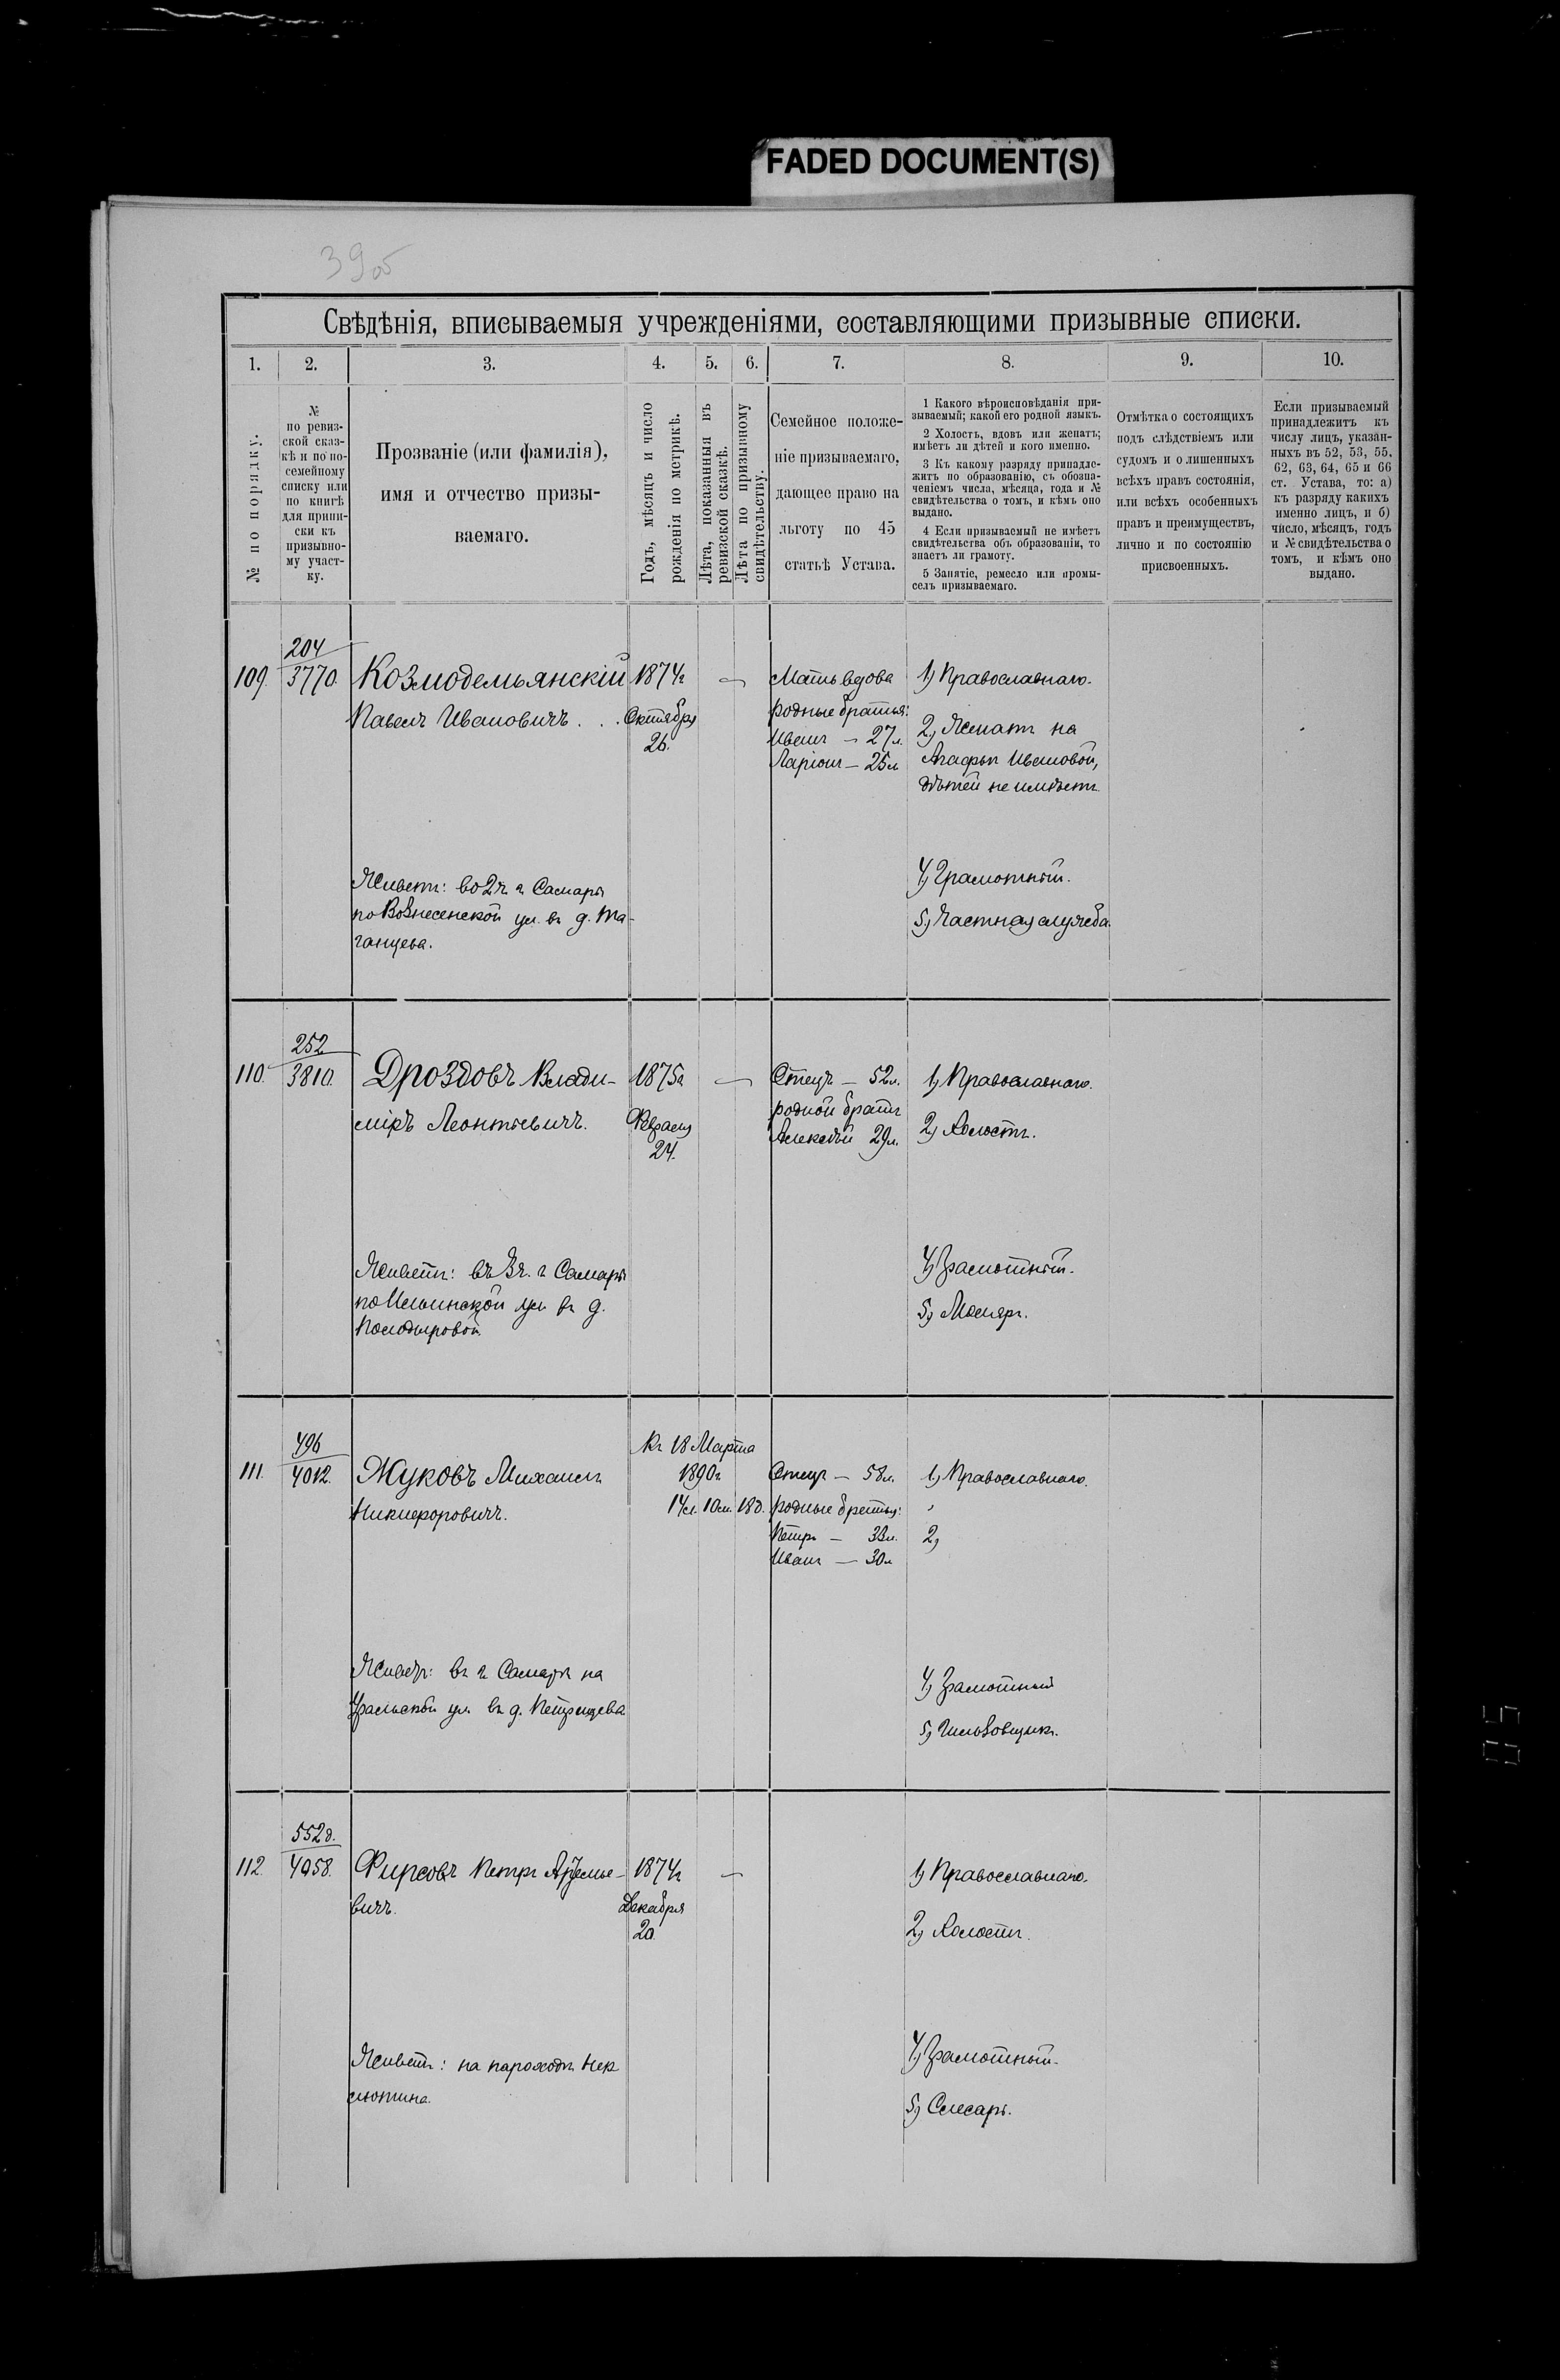 FADED DOCUMENT(S)
39 об
Свѣдѣнія, вписываемыя учрежденіями, составляющими призывные списки.
1. 2. 3. 4. 5. 6. 7. 8. 9. 10.
№ по порядку.
№
по ревиз-
ской сказ-
кѣ и по по-
семейному
списку или
по книгѣ
для припи-
ски къ
призывно-
му участ-
ку.
Прозваніе (или фамилія),
имя и отчество призы-
ваемаго.
Годъ, мѣсяцъ и число
рожденія по метрикѣ.
Лѣта, показанныя въ
ревизской сказкѣ.
Лѣта по призывному
свидѣтельству.
Семейное положе-
ніе призываемаго,
дающее право на
льготу по 45
статьѣ Устава.
1 Какого вѣроисповѣданія при-
зываемый; какой его родной языкъ.
2 Холостъ, вдовъ или женатъ;
имѣетъ ли дѣтей и кого именно.
3 Къ какому разряду принадле-
житъ по образованію, съ обозна-
ченіемъ числа, мѣсяца, года и №
свидѣтельства о томъ, и кѣмъ оно
выдано.
4 Если призываемый не имѣетъ
свидѣтельства объ образованіи, то
знаетъ ли грамоту.
5 Занятіе, ремесло или промы-
селъ призываемаго.
Отмѣтка о состоящихъ
подъ слѣдствіемъ или
судомъ и о лишенныхъ
всѣхъ правъ состоянія,
или всѣхъ особенныхъ
правъ и преимуществъ,
лично и по состоянію
присвоенныхъ.
Если призываемый
принадлежитъ къ
числу лицъ, указан-
ныхъ въ 52, 53, 55,
62, 63, 64, 65 и 66
ст. Устава, то: а)
къ разряду какихъ
именно лицъ, и б)
число, мѣсяцъ, годъ
и № свидѣтельства о
томъ, и кѣмъ оно
выдано.
109.
204
3770.
Козмодемьянскій
Павелъ Ивановичъ . .
Живетъ: во 2 ч. г. Самары
по Вознесенской ул. въ д. Та-
ганцева.
1874 г.
Октября
26.
—
Мать вдова
родные братья:
Иванъ — 27 л.
Ларіонъ — 25 л.
1) Православнаго.
2) Женатъ на
Агафьи Ивановой,
дѣтей не имѣетъ.
4) Грамотный.
5) Частная служба.
110.
252
3810.
Дроздовъ Влади-
міръ Леонтьевичъ.
Живетъ: въ 3 ч. г. Самары
по Ильинской ул. въ д.
1875 г.
Февраля
24.
—
Отецъ — 52 л.
родной братъ
Алексѣй 29 л.
1) Православнаго.
2) Холостъ.
4) Грамотный.
5) Маляръ.
111.
496
4012.
Жуковъ Михаилъ
Никифоровичъ.
Живетъ: въ г. Самарѣ на
Уральской ул. въ д.
Къ 18 Марта
1890 г.
14 л. 10 м. 18 д.
Отецъ — 58 л.
родные братья:
Петръ — 33 л.
Иванъ — 30 л.
1) Православнаго.
2)
4) Грамотный
5) Гильзовщикъ.
112.
552 д.
4058.
Фирсовъ Петръ Артемье-
вичъ.
Живетъ: на пароходѣ Нек
лютина.
1874 г.
Декабря
20.
—
1) Православнаго.
2) Холостъ.
4) Грамотный.
5) Слесарь.